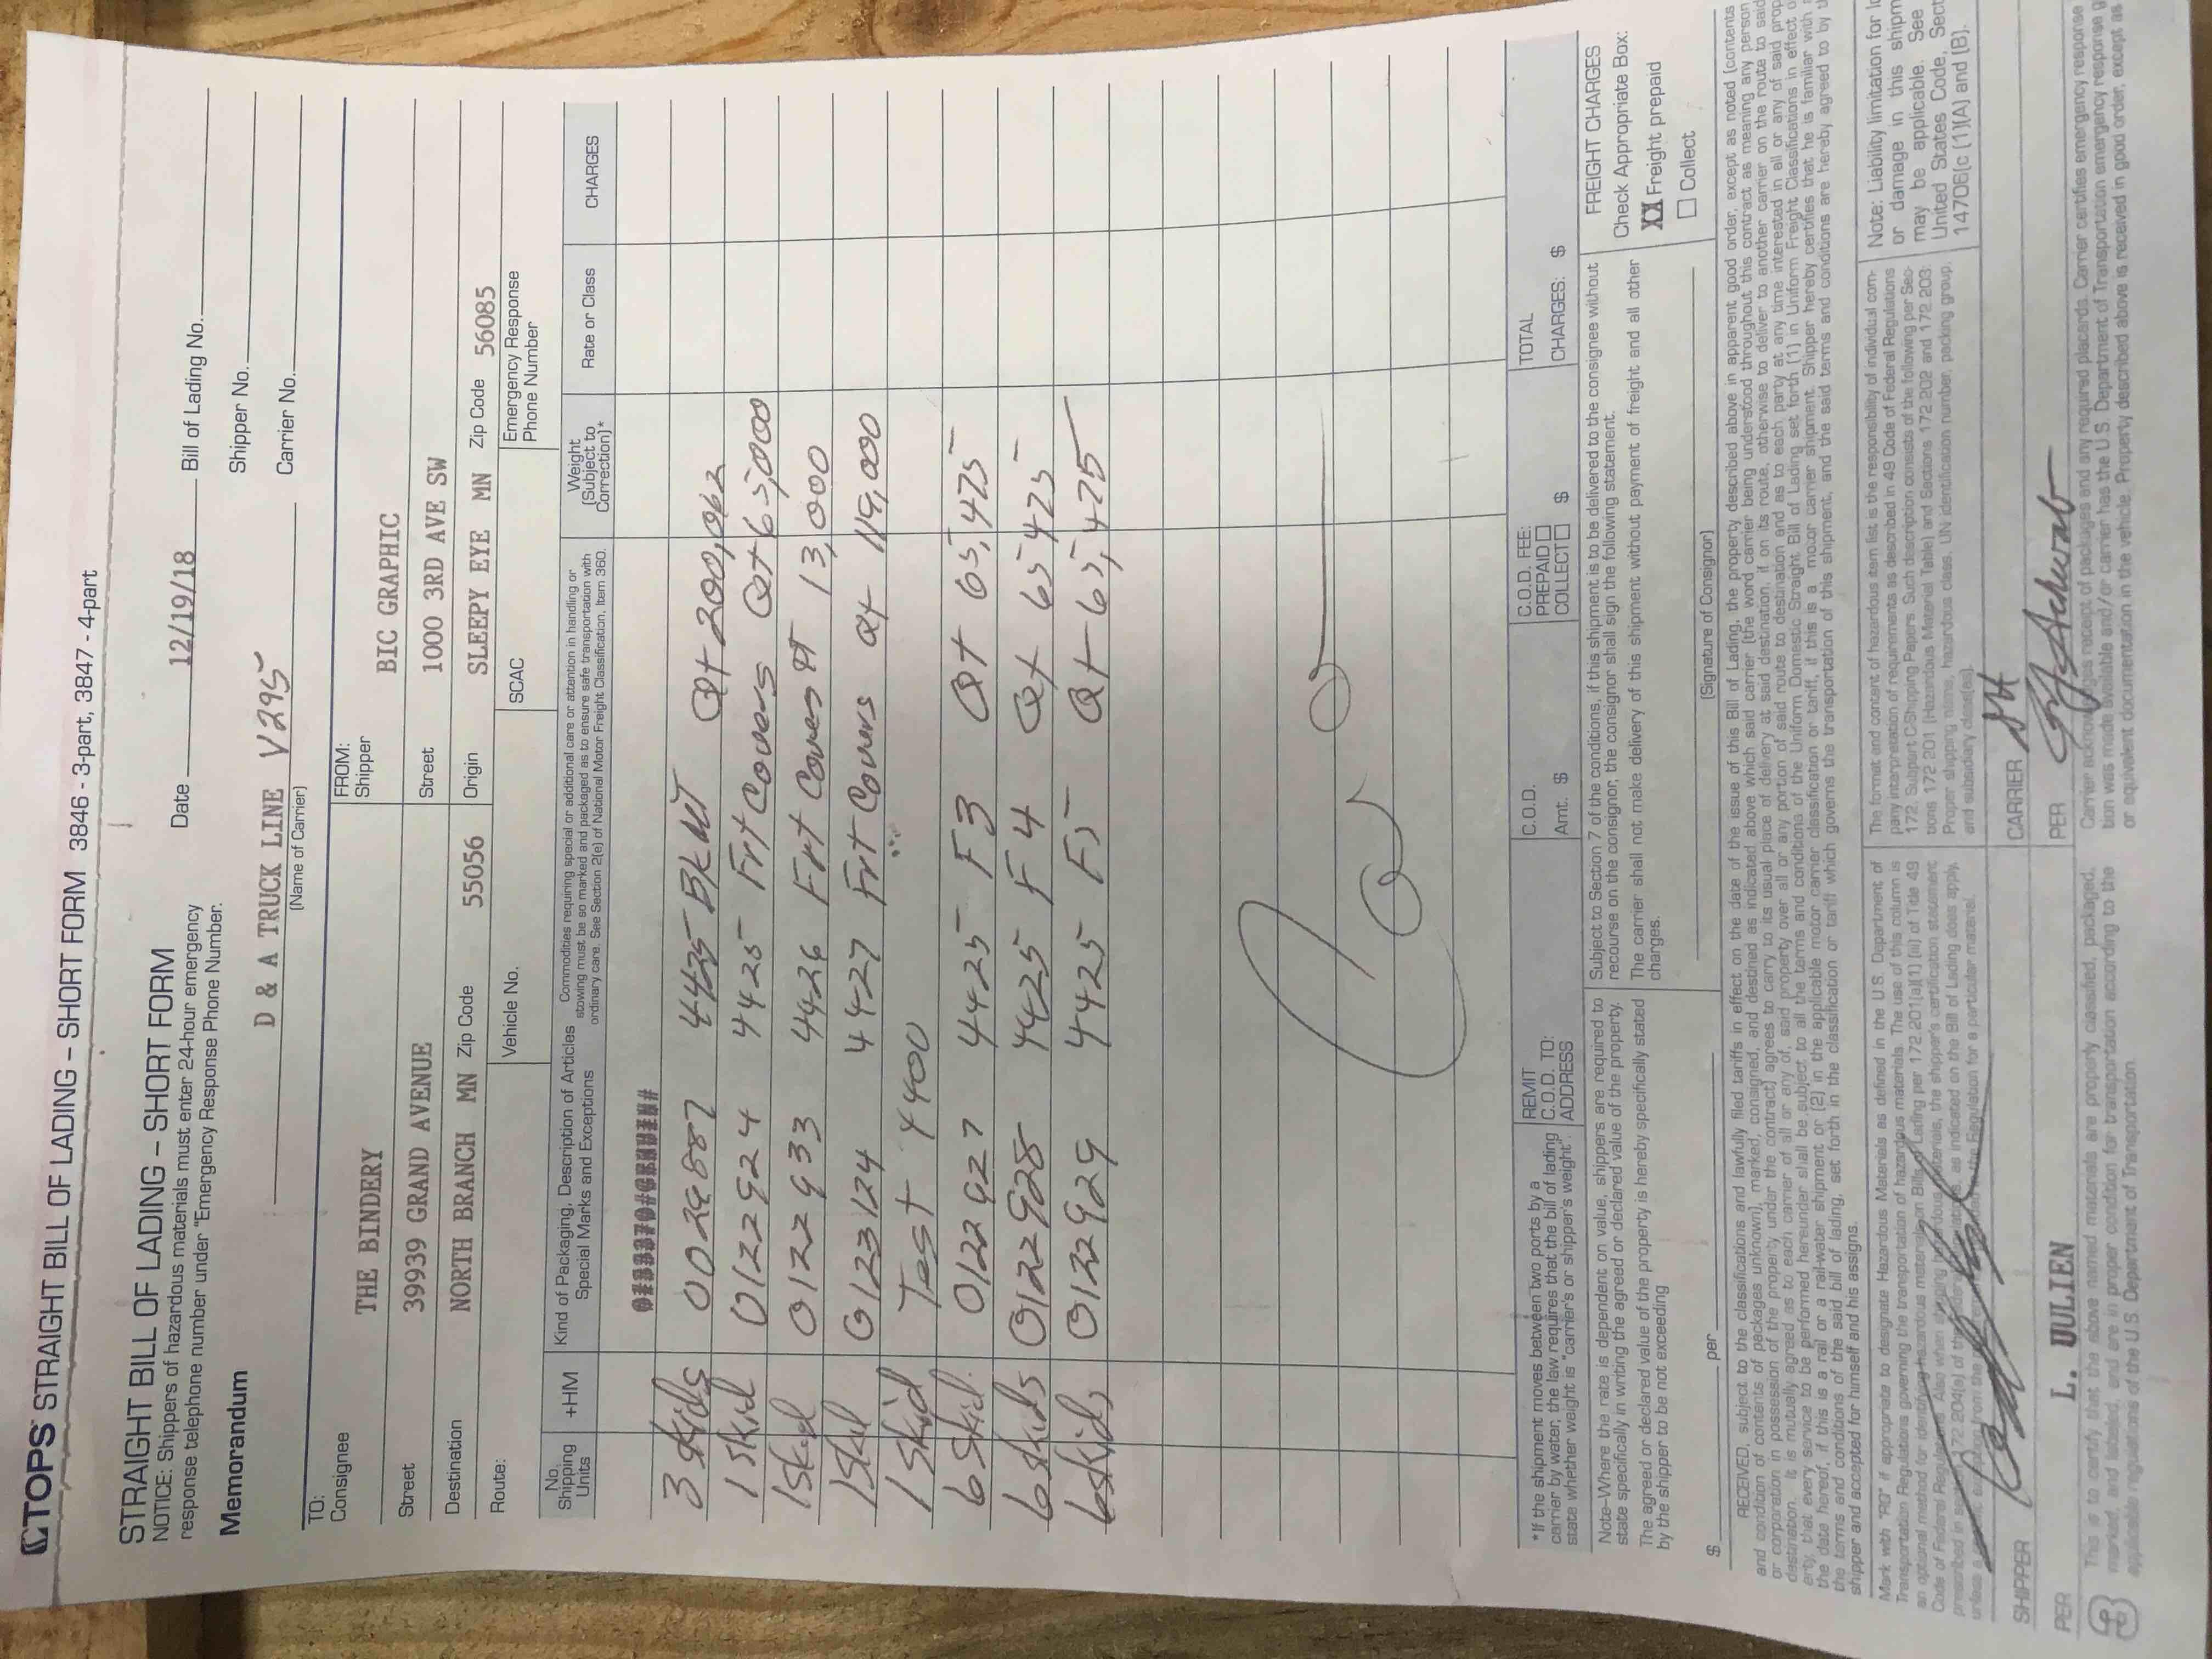 TOPS STRAIGHT BILL OF LADING – SHORT FORM 3846 - 3-part, 3847 - 4-part
STRAIGHT BILL OF LADING – SHORT FORM
NOTICE: Shippers of hazardous materials must enter 24-hour emergency
response telephone number under "Emergency Response Phone Number.
Memorandum
Date 12/19/18 Bill of Lading No.
Shipper No.
Carrier No.
D & A TRUCK LINE V295
(Name of Carrier)
TO:
Consignee THE BINDERY
Street 39939 GRAND AVENUE
Destination NORTH BRANCH MN Zip Code 55056
FROM:
Shipper BIC GRAPHIC
Street 1000 3RD AVE SW
Origin SLEEPY EYE MN Zip Code 56085
Route: Vehicle No. SCAC Emergency Response
Phone Number
No.
Shipping
Units
+HM
Kind of Packaging, Description of Articles
Special Marks and Exceptions
Commodities requiring special or additional care or attention in handling or
stowing must be so marked and packaged as to ensure safe transportation with
ordinary care. See Section 2(e) of National Motor Freight Classification, Item 360.
Weight
(Subject to
Correction)*
Rate or Class
CHARGES
3 skids 0029887 4425 BKMT Qt 200,062
1 skid 0122924 4425 Frt Covers Qt 65,000
1 skid 0122933 4426 Frt Covers QT 13,000
1 skid 0123124 4427 Frt Covers Qt 119,000
1 skid Test 4400
6 skid 0122927 4425 F3 Qt 65,475
6 skids 0122928 4425 F4 Qt 65 425
6 skids 0122929 4425 F5 Qt 65,475
*If the shipment moves between two ports by a
carrier by water, the law requires that the bill of lading
state whether weight is "carrier's or shipper's weight".
REMIT
C.O.D. TO:
ADDRESS
C.O.D.
Amt. $
C.O.D. FEE:
PREPAID
COLLECT $
TOTAL
CHARGES: $
Note–Where the rate is dependent on value, shippers are required to
state specifically in writing the agreed or declared value of the property.
The agreed or declared value of the property is hereby specifically stated
by the shipper to be not exceeding
$ per
Subject to Section 7 of the conditions, if this shipment is to be delivered to the consignee without
recourse on the consignor, the consignor shall sign the following statement.
The carrier shall not make delivery of this shipment without payment of freight and all other
charges.
(Signature of Consignor)
FREIGHT CHARGES
Check Appropriate Box:
XX Freight prepaid
Collect
RECEIVED, subject to the classifications and lawfully filed tariffs in effect on the date of the issue of this Bill of Lading, the property described above in apparent good order, except as noted (contents
and condition of contents of packages unknown), marked, consigned, and destined as indicated above which said carrier (the word carrier being understood throughout this contract as meaning any person
or corporation in possession of the property under the contract) agrees to carry to its usual place of delivery at said destination, if on its route, otherwise to deliver to another carrier on the route to said
destination. It is mutually agreed as to each carrier of all or any of, said property over all or any portion of said route to destination and as to each party at any time interested in all or any of said prop
erty, that every service to be performed hereunder shall be subject to all the terms and conditions of the Uniform Domestic Straight Bill of Lading set forth (1) in Uniform Freight Classifications in effect
the date hereof, if this is a rail or a rail-water shipment, or (2) in the applicable motor carrier classification or tariff, if this is a motor carrier shipment. Shipper hereby certifies that he is familiar with
the terms and conditions of the said bill of lading, set forth in the classification or tariff which governs the transportation of this shipment, and the said terms and conditions are hereby agreed to by
shipper and accepted for himself and his assigns.
Mark with "RQ" if appropriate to designate Hazardous Materials as defined in the U.S. Department of
Transportation Regulations governing the transportation of hazardous materials. The use of this column is
an optional method for identifying hazardous materials on Bills of Lading per 172.201(a)(1) (iii) of Title 49
Code of Federal Regulations. Also when shipping hazardous materials, the shipper's certification statement
prescribed in section 172.204(a) of the Federal Regulations, as indicated on the Bill of Lading does apply,
unless a from the Regulation for a particular material.
The format and content of hazardous item list is the responsibility of individual com-
pany interpretation of requirements as described in 49 Code of Federal Regulations
172, Subpart C-Shipping Papers. Such description consists of the following per Sec-
tions 172.201 (Hazardous Material Table) and Sections 172.202 and 172.203:
Proper shipping name, hazardous class, UN identification number, packing group,
and subsidiary class(es).
Note: Liability limitation for
or damage in this shipm
may be applicable. See
United States Code, Sect
14706(c (1)(A) and (B).
SHIPPER
PER L. JULIEN
CARRIER
PER
This is to certify that the above named materials are properly classified, packaged,
marked, and labeled, and are in proper condition for transportation according to the
applicable regulations of the U.S. Department of Transportation.
Carrier acknowledges receipt of packages and any required placards. Carrier certifies emergency response
tion was made available and/or carrier has the U.S. Department of Transportation emergency response
or equivalent documentation in the vehicle. Property described above is received in good order, except as